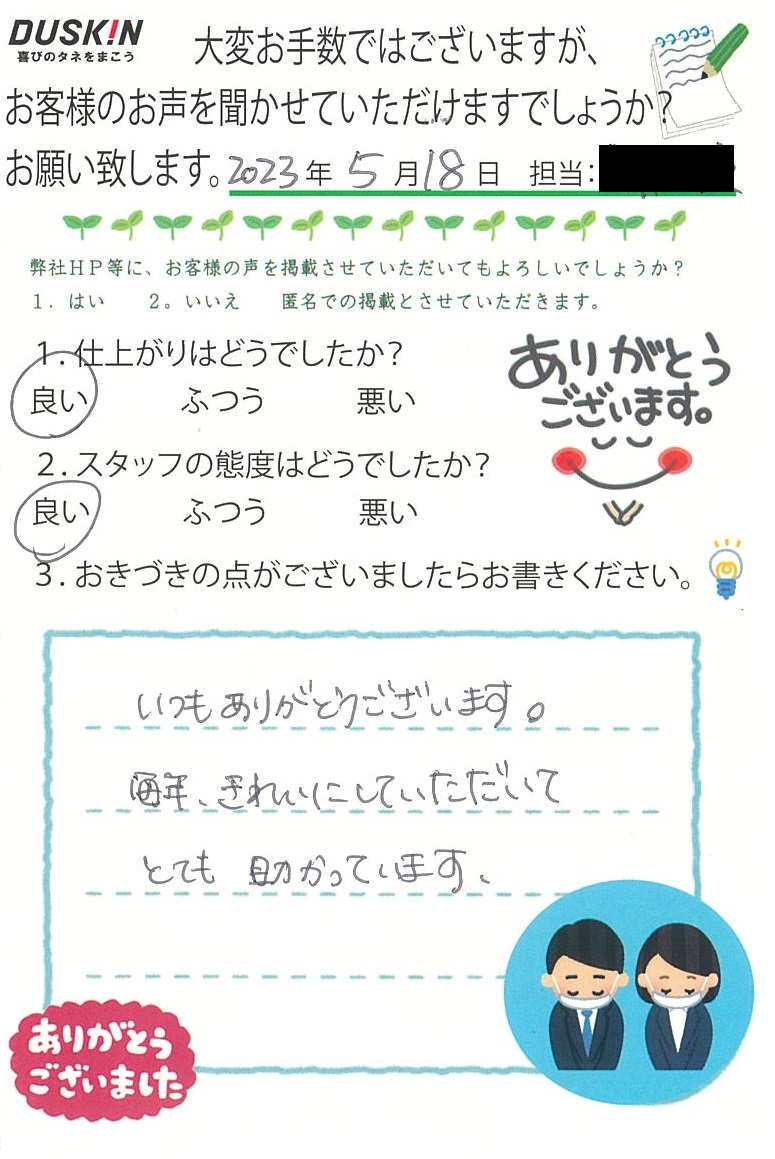 DUSK!N
喜びのタネをまこう
大変お手数ではございますが、
お客様のお声を聞かせていただけますでしょうか?
お願い致します。2023年5月18日 担当:
弊社HP等に、お客様の声を掲載させていただいてもよろしいでしょうか?
1. はい 2。いいえ 匿名での掲載とさせていただきます。
1.仕上がりはどうでしたか?
良い ふつう 悪い
ありがとう
ございます。
2.スタッフの態度はどうでしたか?
良い ふつう 悪い
3.おきづきの点がございましたらお書きください。
いつもありがとうございます。
毎年、きれいにしていただいて
とても 助かっています、
ありがとう
ございました